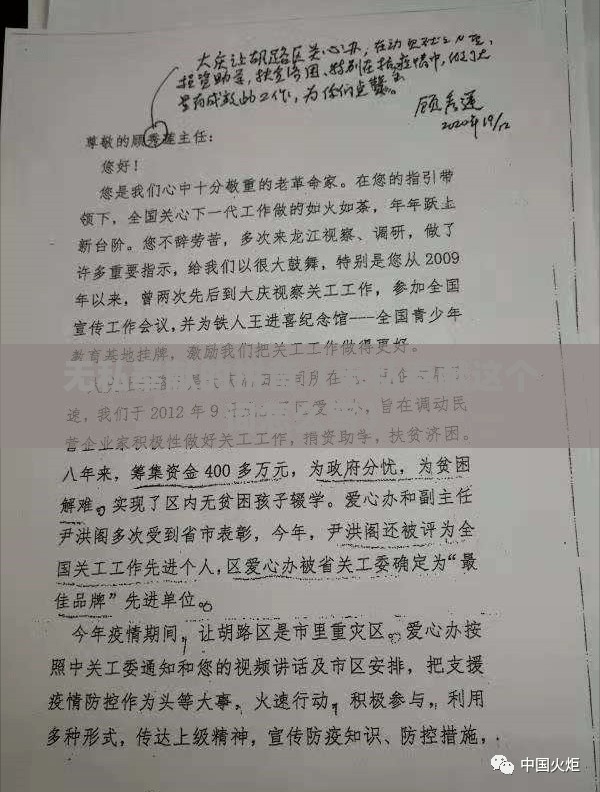 大庆让胡路区关心办,在动员社会力量,
捐资助学,扶贫济困,特别在抗疫情中,做了大
量有成效的工作,为你们点赞。
顾秀莲
2020年19/12
尊敬的顾秀莲主任:
您好!
您是我们心中十分敬重的老革命家。在您的指引带
领下,全国关心下一代工作做的如火如荼,年年跃上
新台阶。您不辞劳苦,多次来龙江视察、调研,做了
许多重要指示,给我们以很大鼓舞,特别是您从 2009
年以来,曾两次先后到大庆视察关工工作,参加全国
宣传工作会议,并为铁人王进喜纪念馆---全国青少年
教育基地挂牌,激励我们把关工工作做得更好。
速,我们于 2012 年 9 月 区爱心办,旨在调动民
营企业家积极性做好关工工作,捐资助学,扶贫济困。
八年来,筹集资金 400 多万元,为政府分忧,为贫困
解难。实现了区内无贫困孩子辍学。爱心办和副主任
尹洪阁多次受到省市表彰,今年,尹洪阁还被评为全
国关工工作先进个人,区爱心办被省关工委确定为“最
佳品牌”先进单位。
今年疫情期间,让胡路区是市里重灾区。爱心办按
照中关工委通知和您的视频讲话及市区安排,把支援
疫情防控作为头等大事,火速行动,积极参与,利用
多种形式,传达上级精神,宣传防疫知识、防控措施,
中国火炬